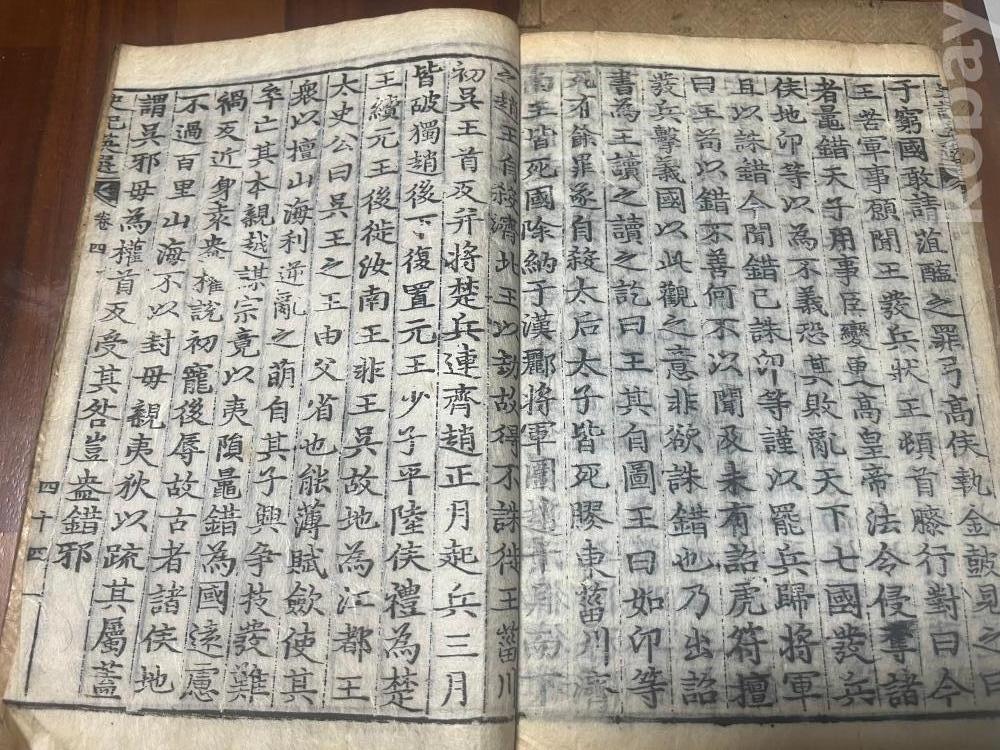 子窮國敢請菹醢之罪弓高侯執金鼓見之曰
王苦軍事願聞王發兵狀王頓首膝行對曰今
者鼂錯天子用事臣變更高皇帝法令侵奪諸
侯地卬等以為不義恐其敗亂天下七國發兵
且以誅錯今聞錯已誅卬等謹以罷兵歸將軍
曰王苟以錯不善何不以聞及未有詔虎符擅
發兵擊義國以此觀之意非欲誅錯也乃出詔
書為王讀之讀之訖曰王其自圖王曰如卬等
死有餘罪遂自殺太后太子皆死膠東菑川濟
南王皆死國除納于漢酈將軍圍趙十月而下
之趙王自殺濟北王以劫故得不誅徙王菑川
初吳王首反并將楚兵連齊趙正月起兵三月
皆破獨趙後下復置元王少子平陸侯禮為楚
王續元王後徙汝南王非王吳故地為江都王
太史公曰吳王之王由父省也能薄賦斂使其
衆以擅山海利逆亂之萌自其子興爭技發難
卒亡其本親越謀宗竟以夷隕鼂錯為國遠慮
禍反近身袁盎權說初寵後辱故古者諸侯地
不過百里山海不以封毋親夷狄以疏其屬蓋
謂吳邪毋為權首反受其咎豈盎錯邪
史記英選 卷四 四十四
Kobay